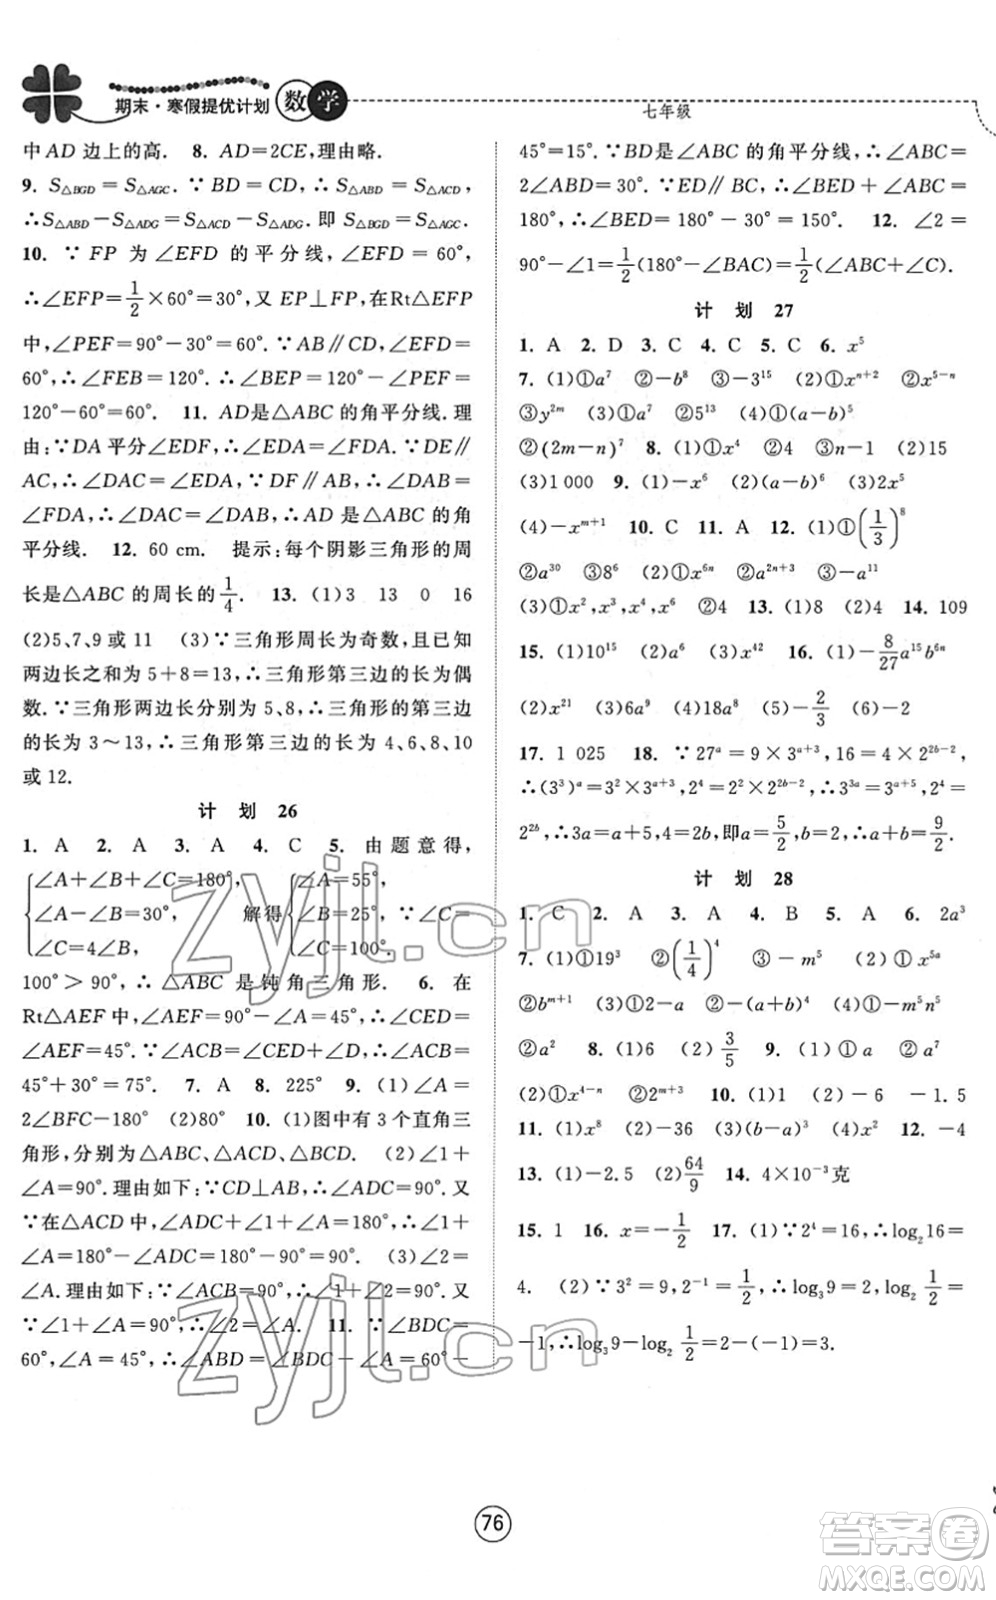 期末·寒假提优计划 数学
七年级
中AD边上的高. 8. AD=2CE,理由略.
9. S△BGD=S△AGC. ∵BD=CD,∴S△ABD=S△ACD,
∴S△ABD−S△ADG=S△ACD−S△ADG. 即S△BGD=S△AGC.
10. ∵ FP 为∠EFD 的平分线,∠EFD=60°,
∴∠EFP=1/2×60°=30°,又EP⊥FP,在Rt△EFP
中,∠PEF=90°−30°=60°. ∵AB∥CD,∠EFD=
60°,∴∠FEB=120°. ∴∠BEP=∠FEB−∠PEF=
120°−60°=60°. 11. AD是△ABC的角平分线.理
由:∵DA平分∠EDF,∴∠EDA=∠FDA. ∵DE∥
AC,∴∠DAC=∠EDA,∵DF∥AB,∴∠DAB=
∠FDA,∴∠DAC=∠DAB. ∴AD是△ABC的角
平分线. 12. 60 cm. 提示:每个阴影三角形的周
长是△ABC的周长的1/4. 13. (1)3 13 0 16
(2)5、7、9或11 (3)∵三角形周长为奇数,且已知
两边长之和为5+8=13,∴三角形第三边的长为偶
数.∵三角形两边长分别为5、8,∴三角形的第三边
的长为3~13,∴三角形第三边的长为4、6、8、10
或12.
计 划 26
1. A 2. A 3. A 4. C 5. 由题意得,
{∠A+∠B+∠C=180°, {∠A=55°,
∠A−∠B=30°, 解得 ∠B=25°, ∵∠C=
∠C=4∠B, ∠C=100°.
100°>90°,∴△ABC是钝角三角形. 6. 在
Rt△AEF中,∠AEF=90°−∠A=45°,∴∠CED=
∠AEF=45°. ∵∠ACB=∠CED+∠D,∴∠ACB=
45°+30°=75°. 7. A 8. 225° 9. (1)∠A=
2∠BFC−180° (2)80° 10. (1)图中有3个直角三
角形,分别为△ABC、△ACD、△BCD. (2)∠1+
∠A=90°.理由如下:∵CD⊥AB,∴∠ADC=90°.又
∵在△ACD中,∠ADC+∠1+∠A=180°,∴∠1+
∠A=180°−∠ADC=180°−90°=90°. (3)∠2=
∠A.理由如下:∵∠ACB=90°,∴∠1+∠2=90°.又
∵∠1+∠A=90°,∴∠2=∠A. 11. ∵∠BDC=
60°,∠A=45°,∴∠ABD=∠BDC−∠A=60°−
45°=15°. ∵BD是∠ABC的角平分线,∴∠ABC=
2∠ABD=30°. ∵ED∥BC,∴∠BED+∠ABC=
180°,∴∠BED=180°−30°=150°. 12. ∠2=
90°−∠1=1/2(180°−∠BAC)=1/2(∠ABC+∠C).
计 划 27
1. A 2. D 3. C 4. C 5. C 6. x⁵
7. (1)①a⁷ ②−b⁸ ③−3¹⁵ (2)①xⁿ⁺² ②x⁵⁻ⁿ
③y²ᵐ (3)①a⁷ ②5¹³ (4)①(a−b)⁵
②(2m−n)⁷ 8. (1)①x⁴ ②4 ③n−1 (2)15
(3)1 000 9. (1)−x⁶ (2)(a−b)⁶ (3)2x⁵
(4)−xᵐ⁺¹ 10. C 11. A 12. (1)①(1/3)⁸
②a³⁰ ③8⁶ (2)①x⁶ⁿ ②a²ⁿ⁺³ ③−a¹¹
(3)①x²,x³,x⁴,x⁶ ②4 13. (1)8 (2)4 14. 109
15. (1)10¹⁵ (2)a⁶ (3)x⁴² 16. (1)−8/27a¹⁵b⁶ⁿ
(2)x²¹ (3)6a⁹ (4)18a⁸ (5)−2/3 (6)−2
17. 1 025 18. ∵27ᵃ=9×3ᵃ⁺³,16=4×2²ᵇ⁻²,
∴(3³)ᵃ=3²×3ᵃ⁺³,2⁴=2²×2²ᵇ⁻². ∴3³ᵃ=3ᵃ⁺⁵,2⁴=
2²ᵇ,∴3a=a+5,4=2b,即a=5/2,b=2,∴a+b=9/2.
计 划 28
1. C 2. A 3. A 4. B 5. A 6. 2a³
7. (1)①19³ ②(1/4)⁴ ③−m⁵ (2)①x⁵ᵃ
②bᵐ⁺¹ (3)①2−a ②−(a+b)³ (4)①−m⁵n⁵
②a² 8. (1)6 (2)3/5 9. (1)①a ②a⁷
(2)①x⁴⁻ⁿ ②2ᵐ⁺³ 10. (1)1 (2)−6 (3)−1.5
11. (1)x⁸ (2)−36 (3)(b−a)³ (4)x² 12. −4
13. (1)−2.5 (2)64/9 14. 4×10⁻³克
15. 1 16. x=−1/2 17. (1)∵2⁴=16,∴log₂16=
4. (2)∵3²=9,2⁻¹=1/2,∴log₃9=2,log₂1/2=
−1,∴log₃9−log₂1/2=2−(−1)=3.
76
zyjl.cn
zyjl.cn
答案卷
MXQE.COM